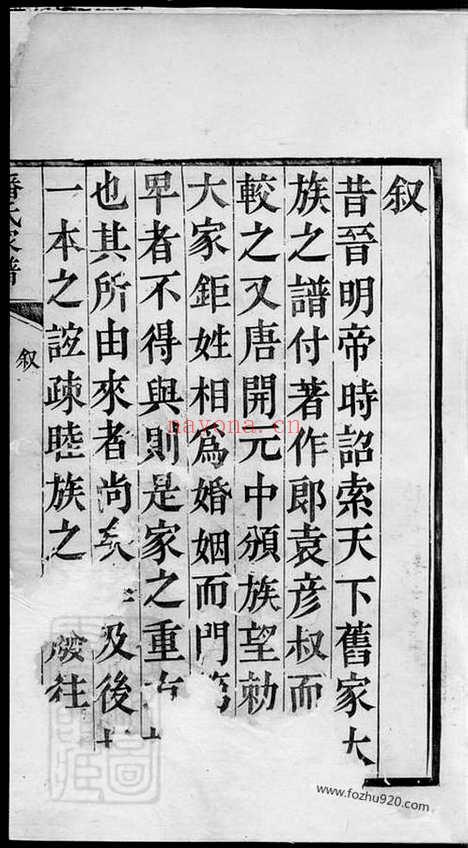 叙
昔晉明帝時詔索天下舊家大
族之譜付著作郎袁彦叔而
較之又唐開元中頒族望勑
大家鉅姓相爲婚姻而門第
畀者不得與則是家之重
也其所由來者尚矣 及後
一本之誼疎睦族之 廢往
潘氏家譜
叙
nayona.cn
www.fozhu920.com